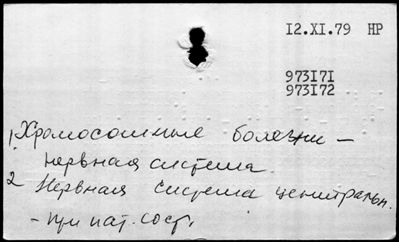 12.XI.79 НР
973171
973172
1. Хромосомные болезни –
нервная система.
2 Нервная система централь.
– при пат. сост.